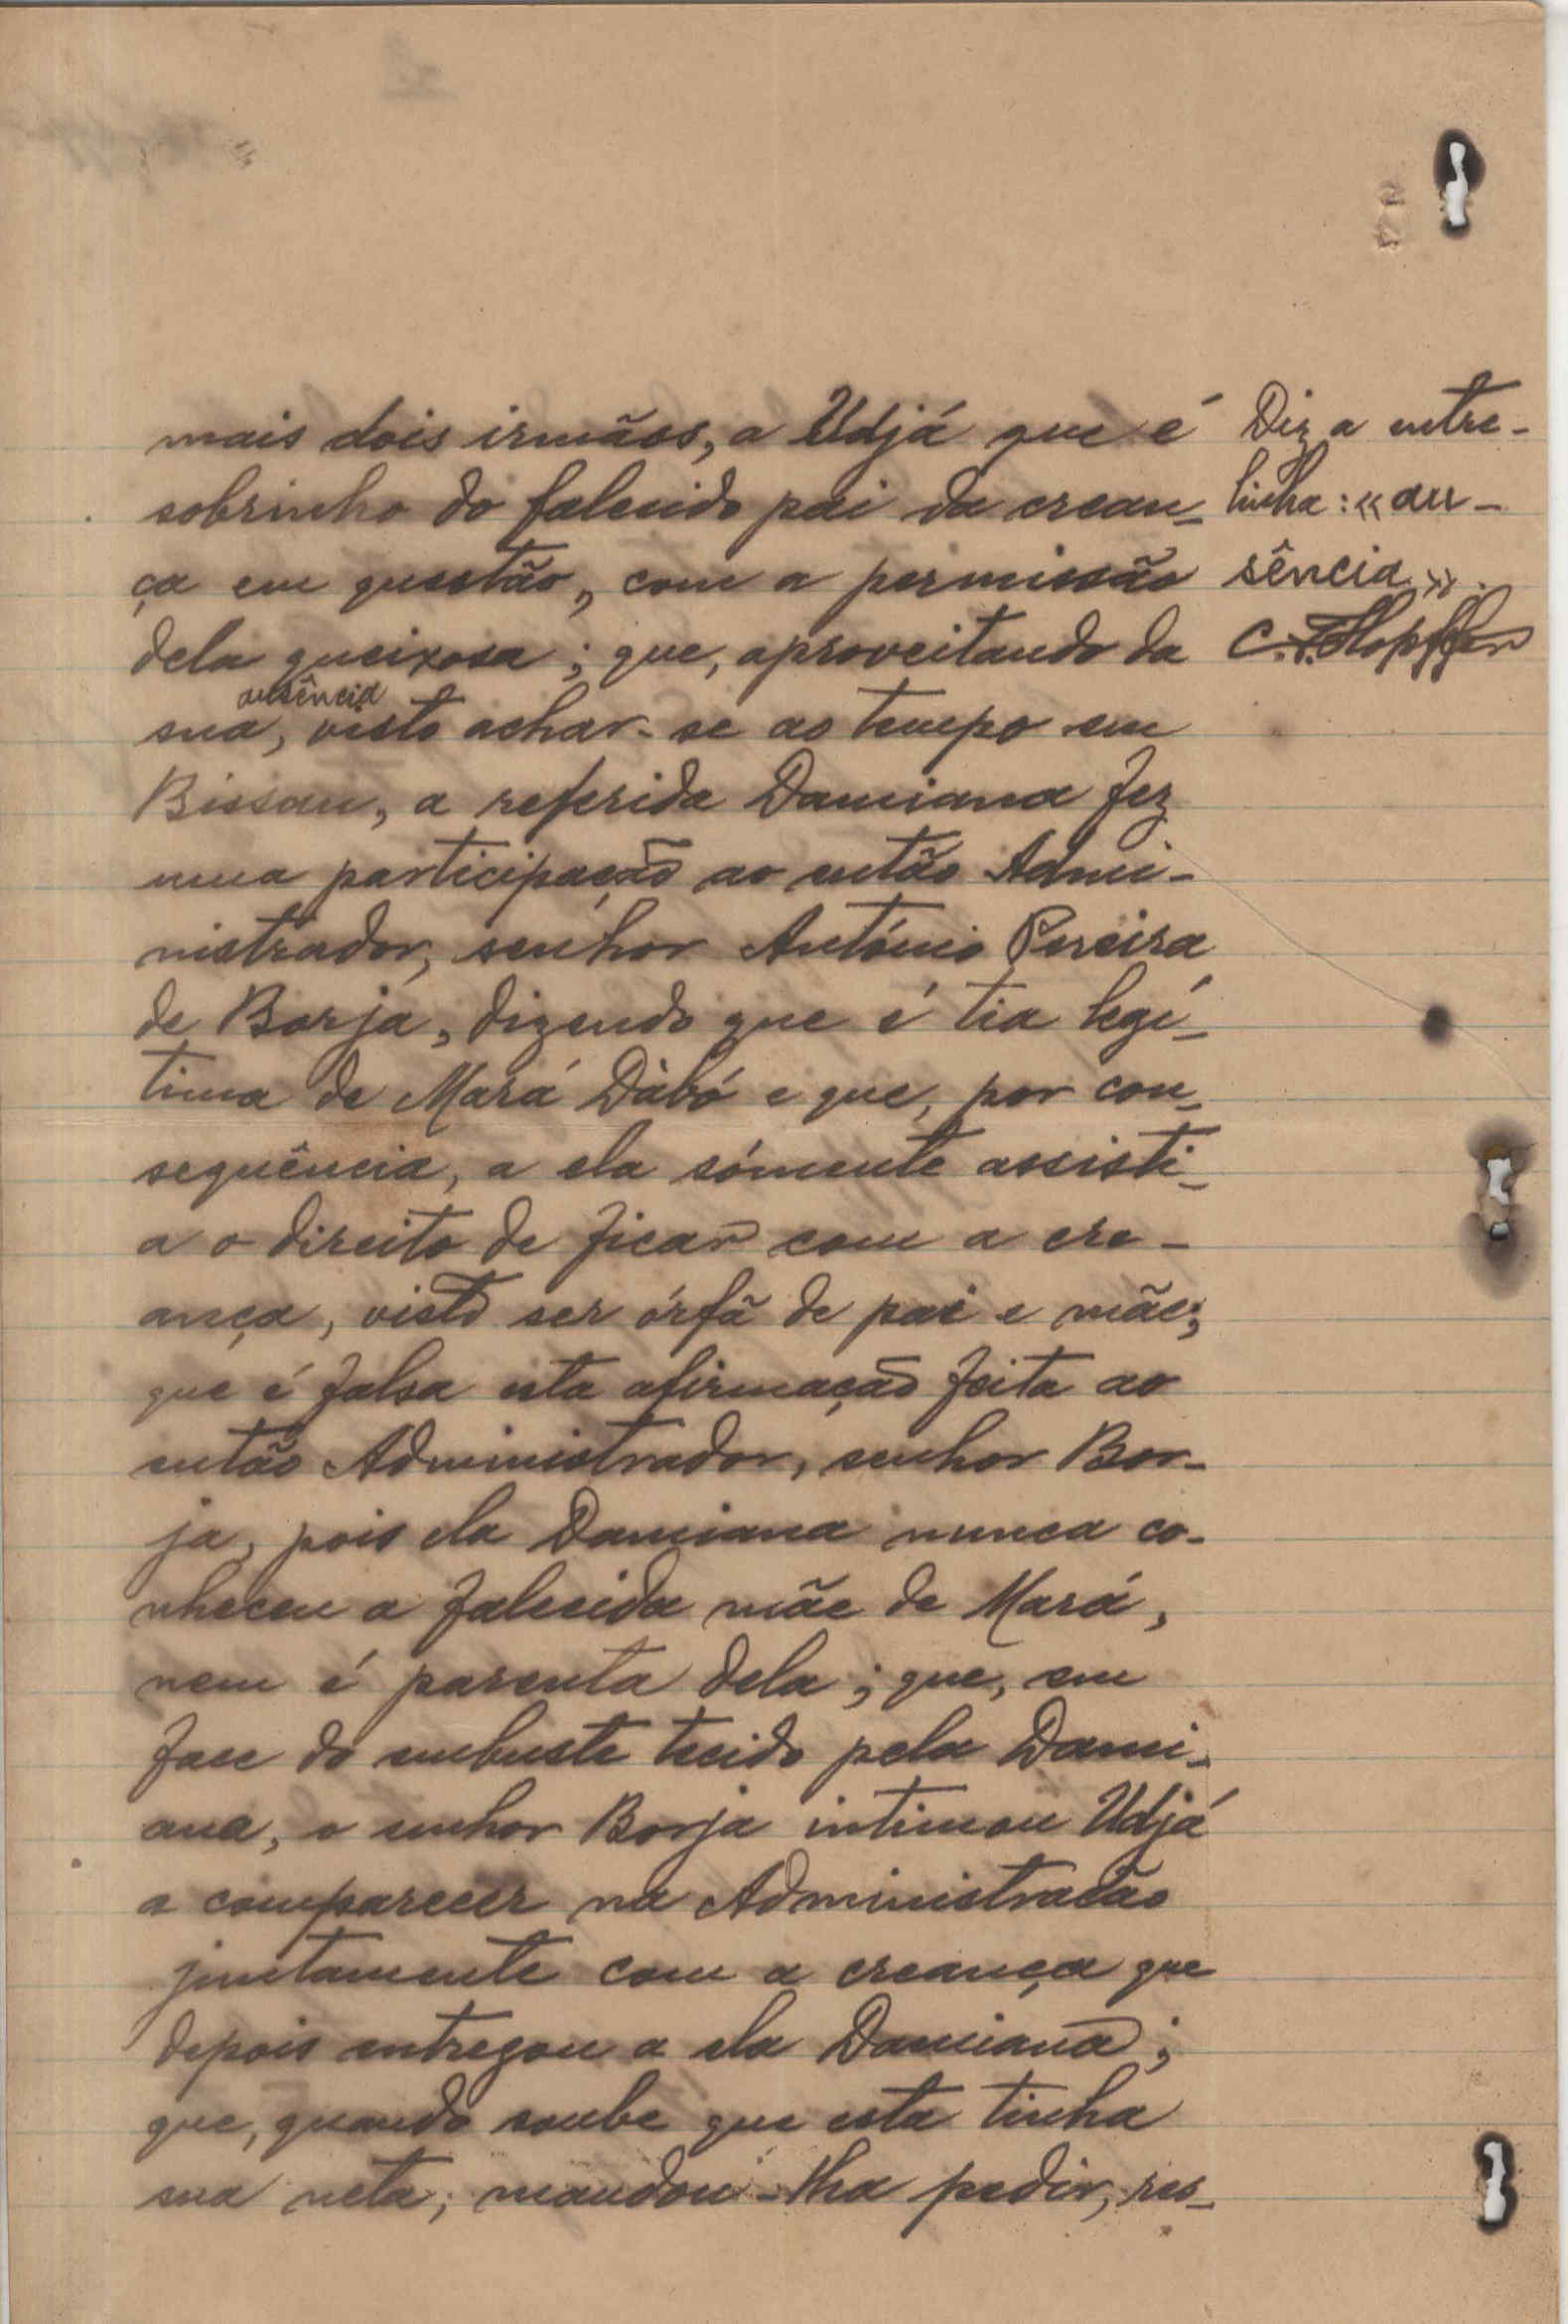 mais dois irmãos, a Udjá que é
sobrinho do falecido pai da crean-
ça em questão, com a permissão
dela queixosa; que, aproveitando da
ausência
sua, visto achar-se ao tempo em
Bissau, a referida Damiana fez
uma participação ao então Admi-
nistrador, senhor António Pereira
de Borja, dizendo que é tia legí-
tima de Mará Dàbó e que, por con-
seqüência, a ela sómente assisti-
a o direito de ficar com a cre-
ança, visto ser órfã de pai e mãe;
que é falsa esta afirmação feita ao
então Administrador, senhor Bor-
ja, pois ela Damiana nunca co-
nheceu a falecida mãe de Mará,
nem é parenta dela; que, em
face do embuste tecido pela Dami-
ana, o senhor Borja intimou Udjá
a comparecer na Administracão
juntamente com a creança que
depois entregou a ela Damiana;
que, quando soube que esta tinha
sua neta, mandou-lha pedir, res-
Diz a entre-
linha: «au-
sência».
C. F. Hopffer